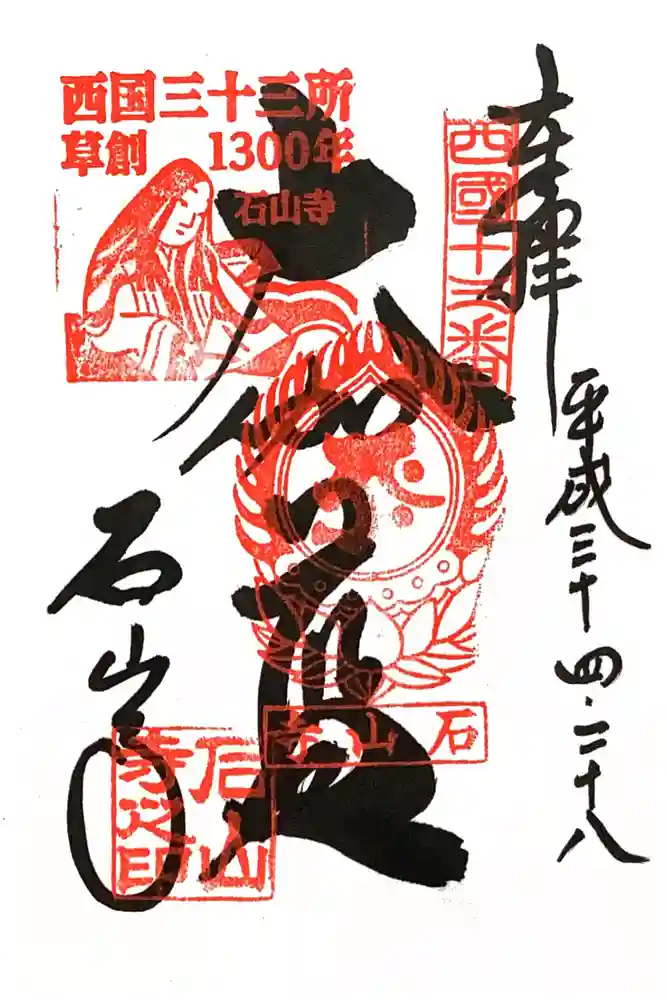 奉拝
平成三十 四.二十八
西國十三番
大伽藍
石山寺
西国三十三所
草創 1300年
石山寺
石山寺
石山寺之印